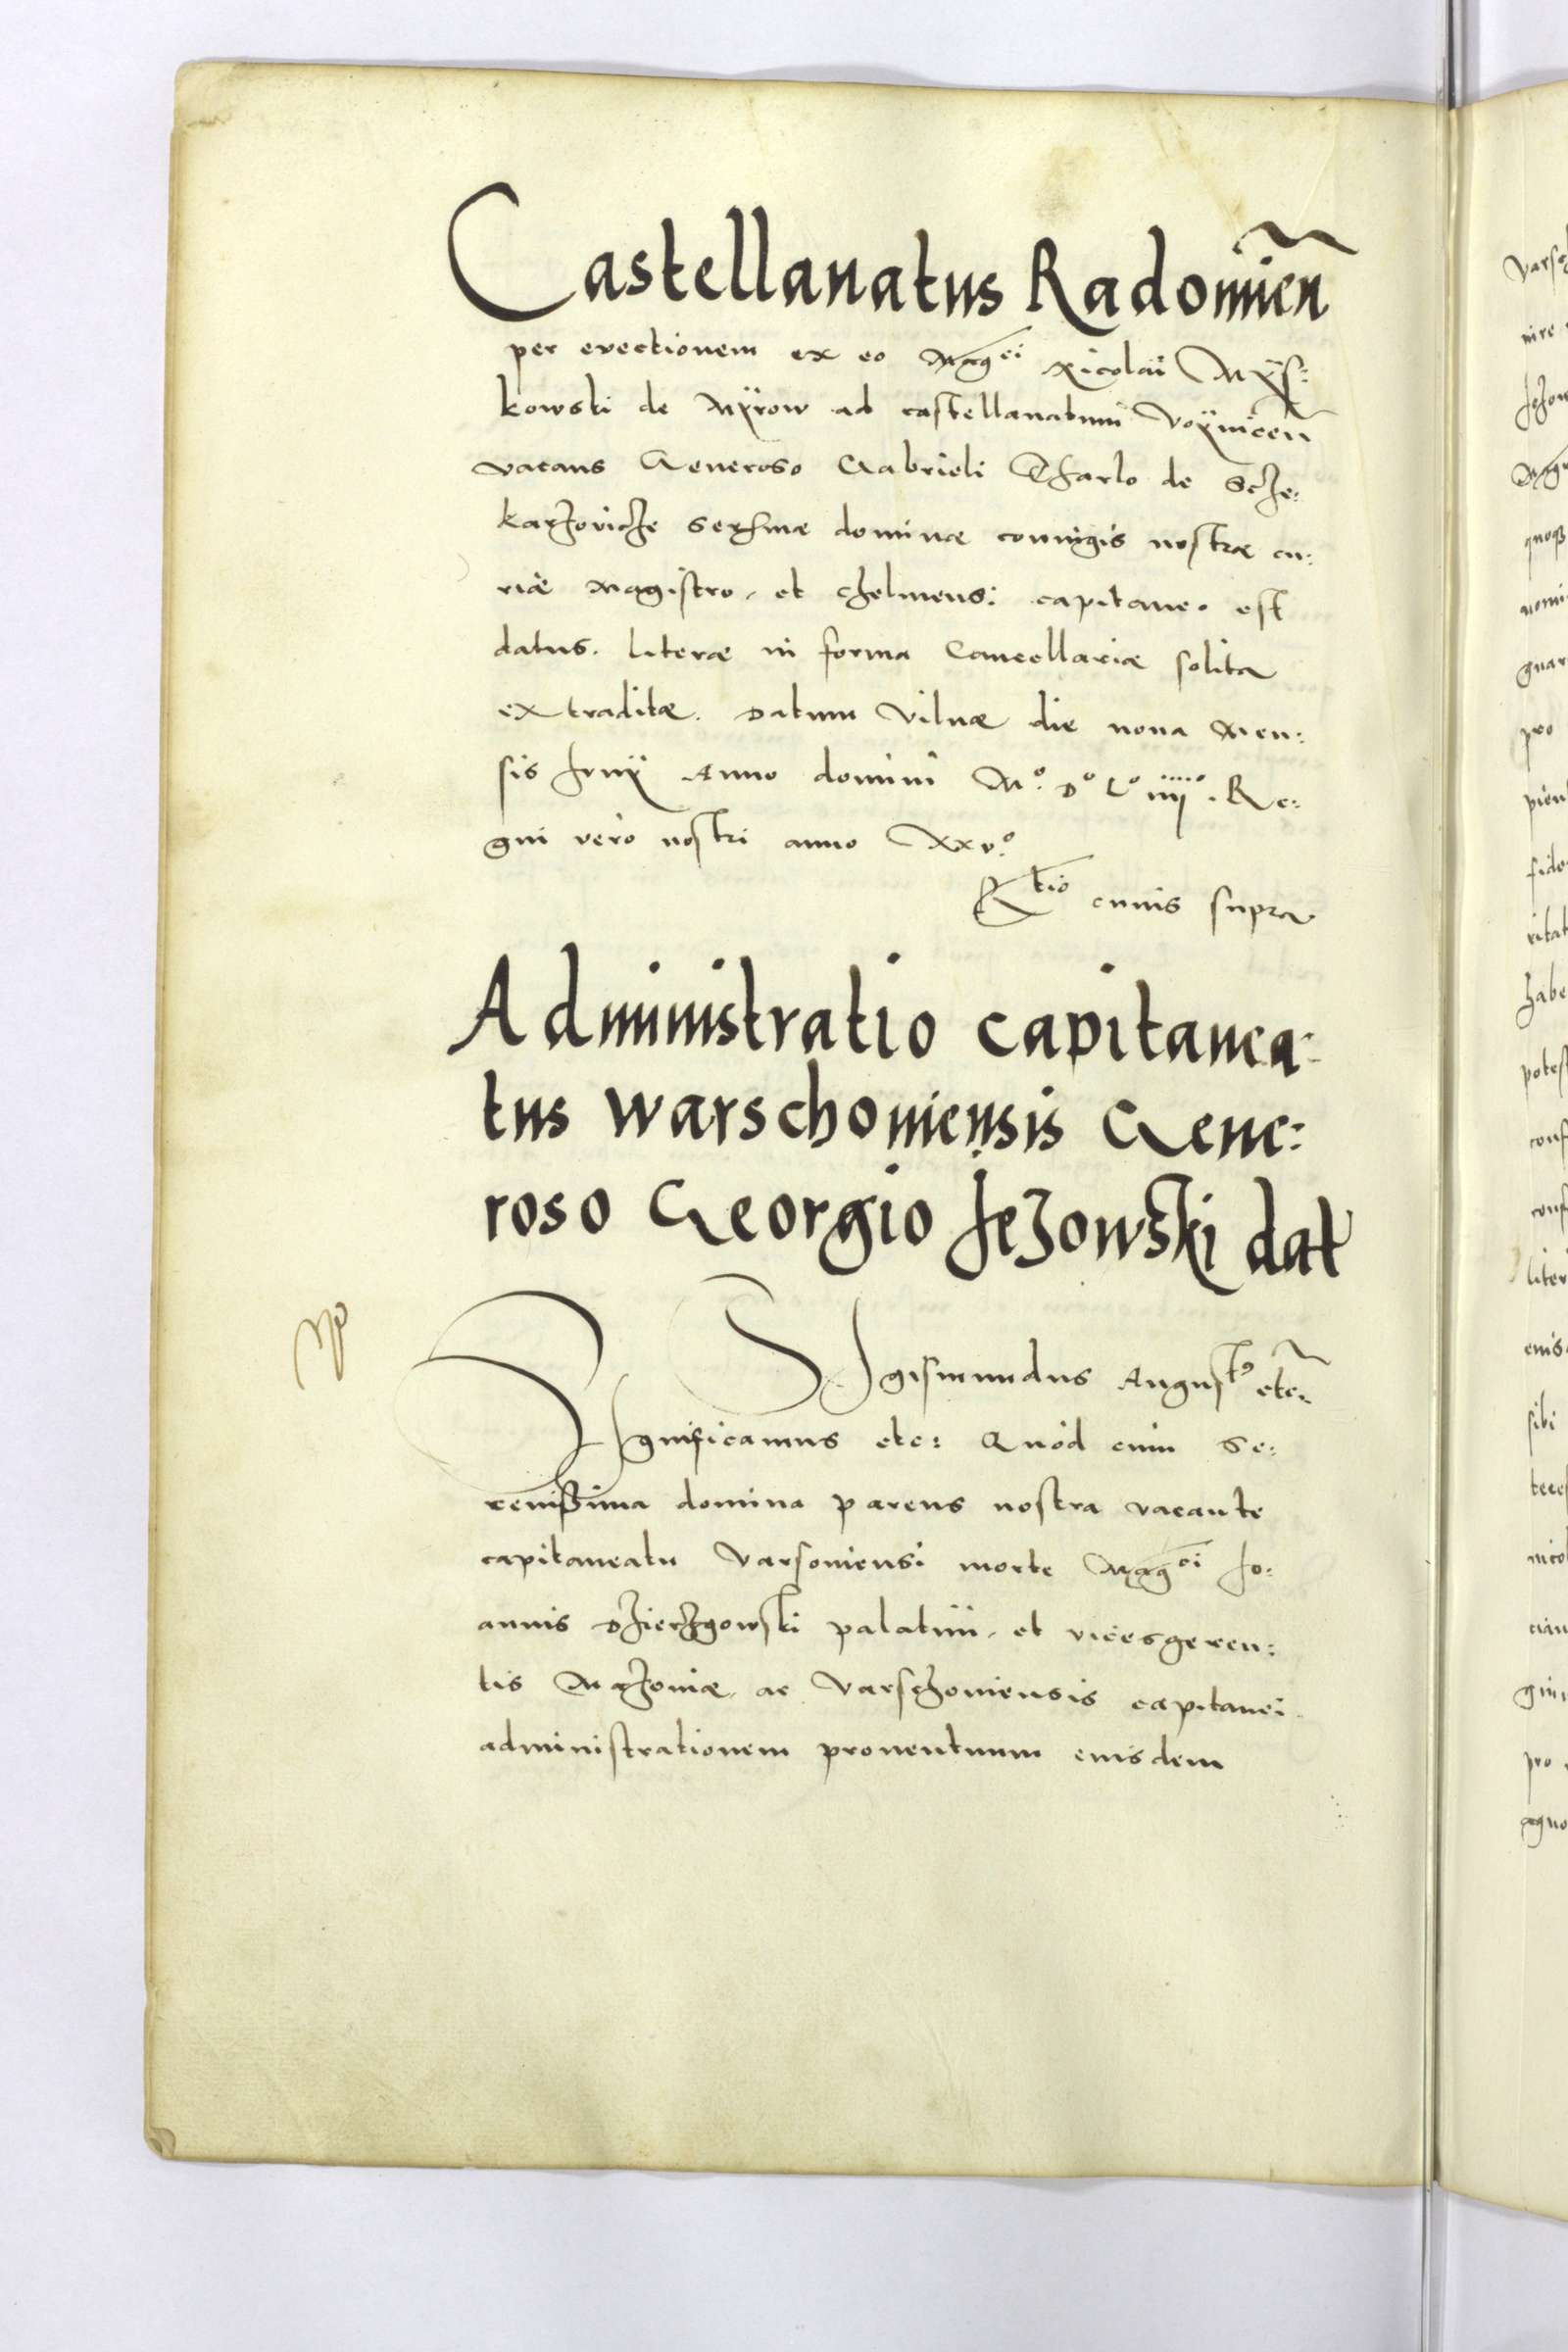 Castellanatus Radomien
per evectionem ex eo Mag^ci Nicolai Mÿs:
kowski de Mÿrow ad castellanatum Voÿnicen
vacans Generoso Gabrieli Tharlo de Scze:
karzovicze Sermae dominae coniugis nostrae cu:
riae Magistro, et chelmensi capitaneo est
datus. Literae in forma Cancellariae solita
extraditae. Datum Vilnae die nona Men:
sis Junÿ Anno domini M^o. D^o L^o iiij^o. Re:
gni vero nostri anno XXv^o.
R^tio cuius supra
Administratio capitanea:
tus warschoviensis Gene:
roso Georgio Jezowski dat
Np
SIgismundus August9 etc.
SIgnificamus etc: Quod cum Se:
renissima domina parens nostra vacante
capitaneatu Varsoviensi morte Mag^ci Jo:
annis Dzierzgowski palatini, et vicesgeren:
tis Mazoviae, ac Varschoviensis capitanei
administrationem proventuum eiusdem